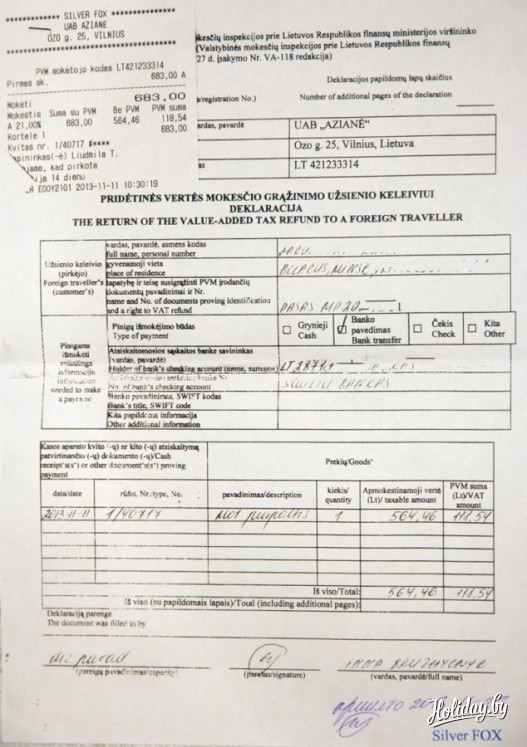 SILVER FOX
UAB AZIANE
OZO g. 25, VILNIUS
PVM mokėtojo kodas LT421233314
Pirmas sk. 683,00 A
Mokėti 683.00
Mokestis Suma su PVM Be PVM PVM suma
A 21,00% 683,00 564,46 118,54
Kortele 1 683,00
Kvitas nr. 1/40717 #****
Liudmila T.
kad pirkote
14 dienu
2013-11-11 10:30:19
mokesčių inspekcijos prie Lietuvos Respublikos finansų ministerijos viršininko
(Valstybinės mokesčių inspekcijos prie Lietuvos Respublikos finansų
27 d. įsakymo Nr. VA-118 redakcija)
Deklaracijos papildomų lapų skaičius
/registration No.) Number of additional pages of the declaration
vardas, pavardė UAB „AZIANĖ"
Ozo g. 25, Vilnius, Lietuva
LT 421233314
PRIDĖTINĖS VERTĖS MOKESČIO GRĄŽINIMO UŽSIENIO KELEIVIUI
DEKLARACIJA
THE RETURN OF THE VALUE-ADDED TAX REFUND TO A FOREIGN TRAVELLER
Užsienio keleivio
(pirkėjo)
Foreign traveller's
(customer's)
vardas, pavardė, asmens kodas
full name, personal number
gyvenamoji vieta
place of residence
tapatybę ir teisę susigrąžinti PVM įrodančių
dokumentų pavadinimai ir Nr.
name and No. of documents proving identification
and a right to VAT refund
PASAS MP20
Pinigams
išmokėti
reikalinga
informacija
information
needed to make
a payment
Pinigų išmokėjimo būdas
Type of payment
Grynieji
Cash
Banko
pavedimas
Bank transfer
Čekis
Check
Kita
Other
Atsiskaitomosios sąskaitos banko savininkas
(vardas, pavardė)
Holder of bank's checking account (name, surname)
LT2871
No. of bank's checking account
BANKAS
Banko pavadinimas, SWIFT kodas
Bank's title, SWIFT code
Kita papildoma informacija
Other additional information
Kasos aparato kvito (-ų) ar kito (-ų) atsiskaitymą
patvirtinančio (-ų) dokumento (-ų)/Cash
receipt's(s') or other document's(s') proving
payment
Prekių/Goods'
data/date rūšis, Nr./type, No. pavadinimas/description kiekis/quantity Apmokestinamoji vertė (Lt)/ taxable amount PVM suma (Lt)/VAT amount
2013-11-11 1/40717 1 564,46 118,54
Iš viso/Total: 564,46 118,54
Iš viso (su papildomais lapais)/Total (including additional pages):
Deklaraciją parengė
The document was filled in by
(pareigų pavadinimas/capacity) (parašas/signature) (vardas, pavardė/full name)
Holiday.by
Silver FOX